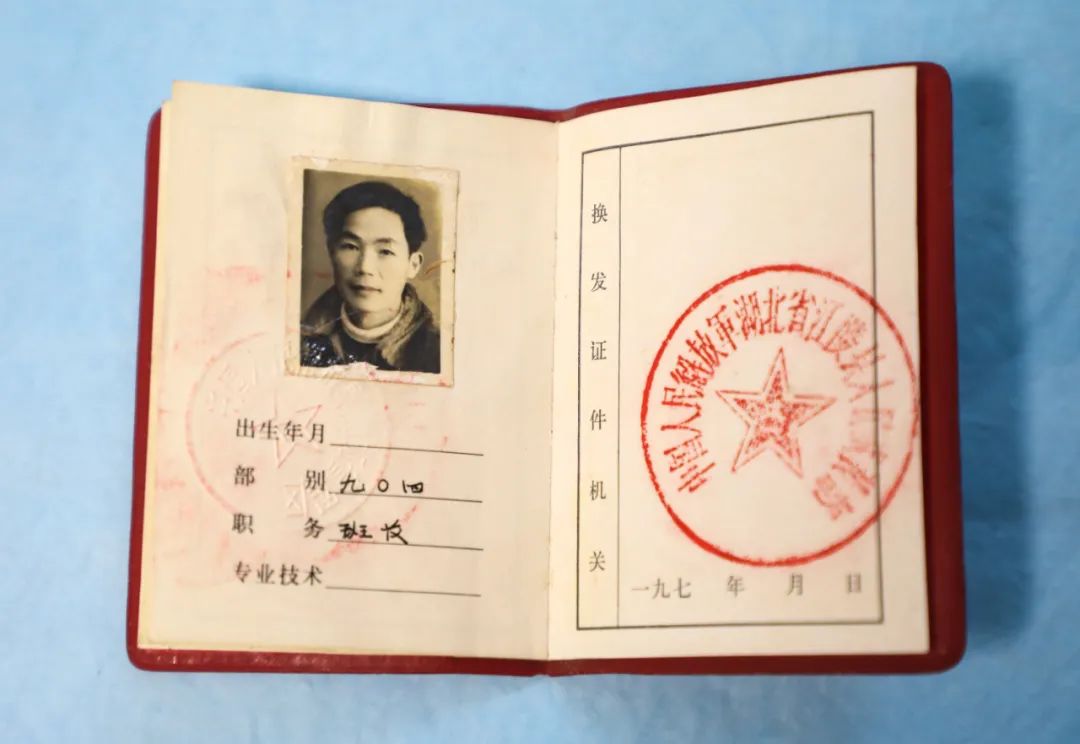 出生年月
部别 九〇四
职务 班长
专业技术
换发证件机关
中国人民解放军湖北省江陵县人民武装部
一九七 年 月 日